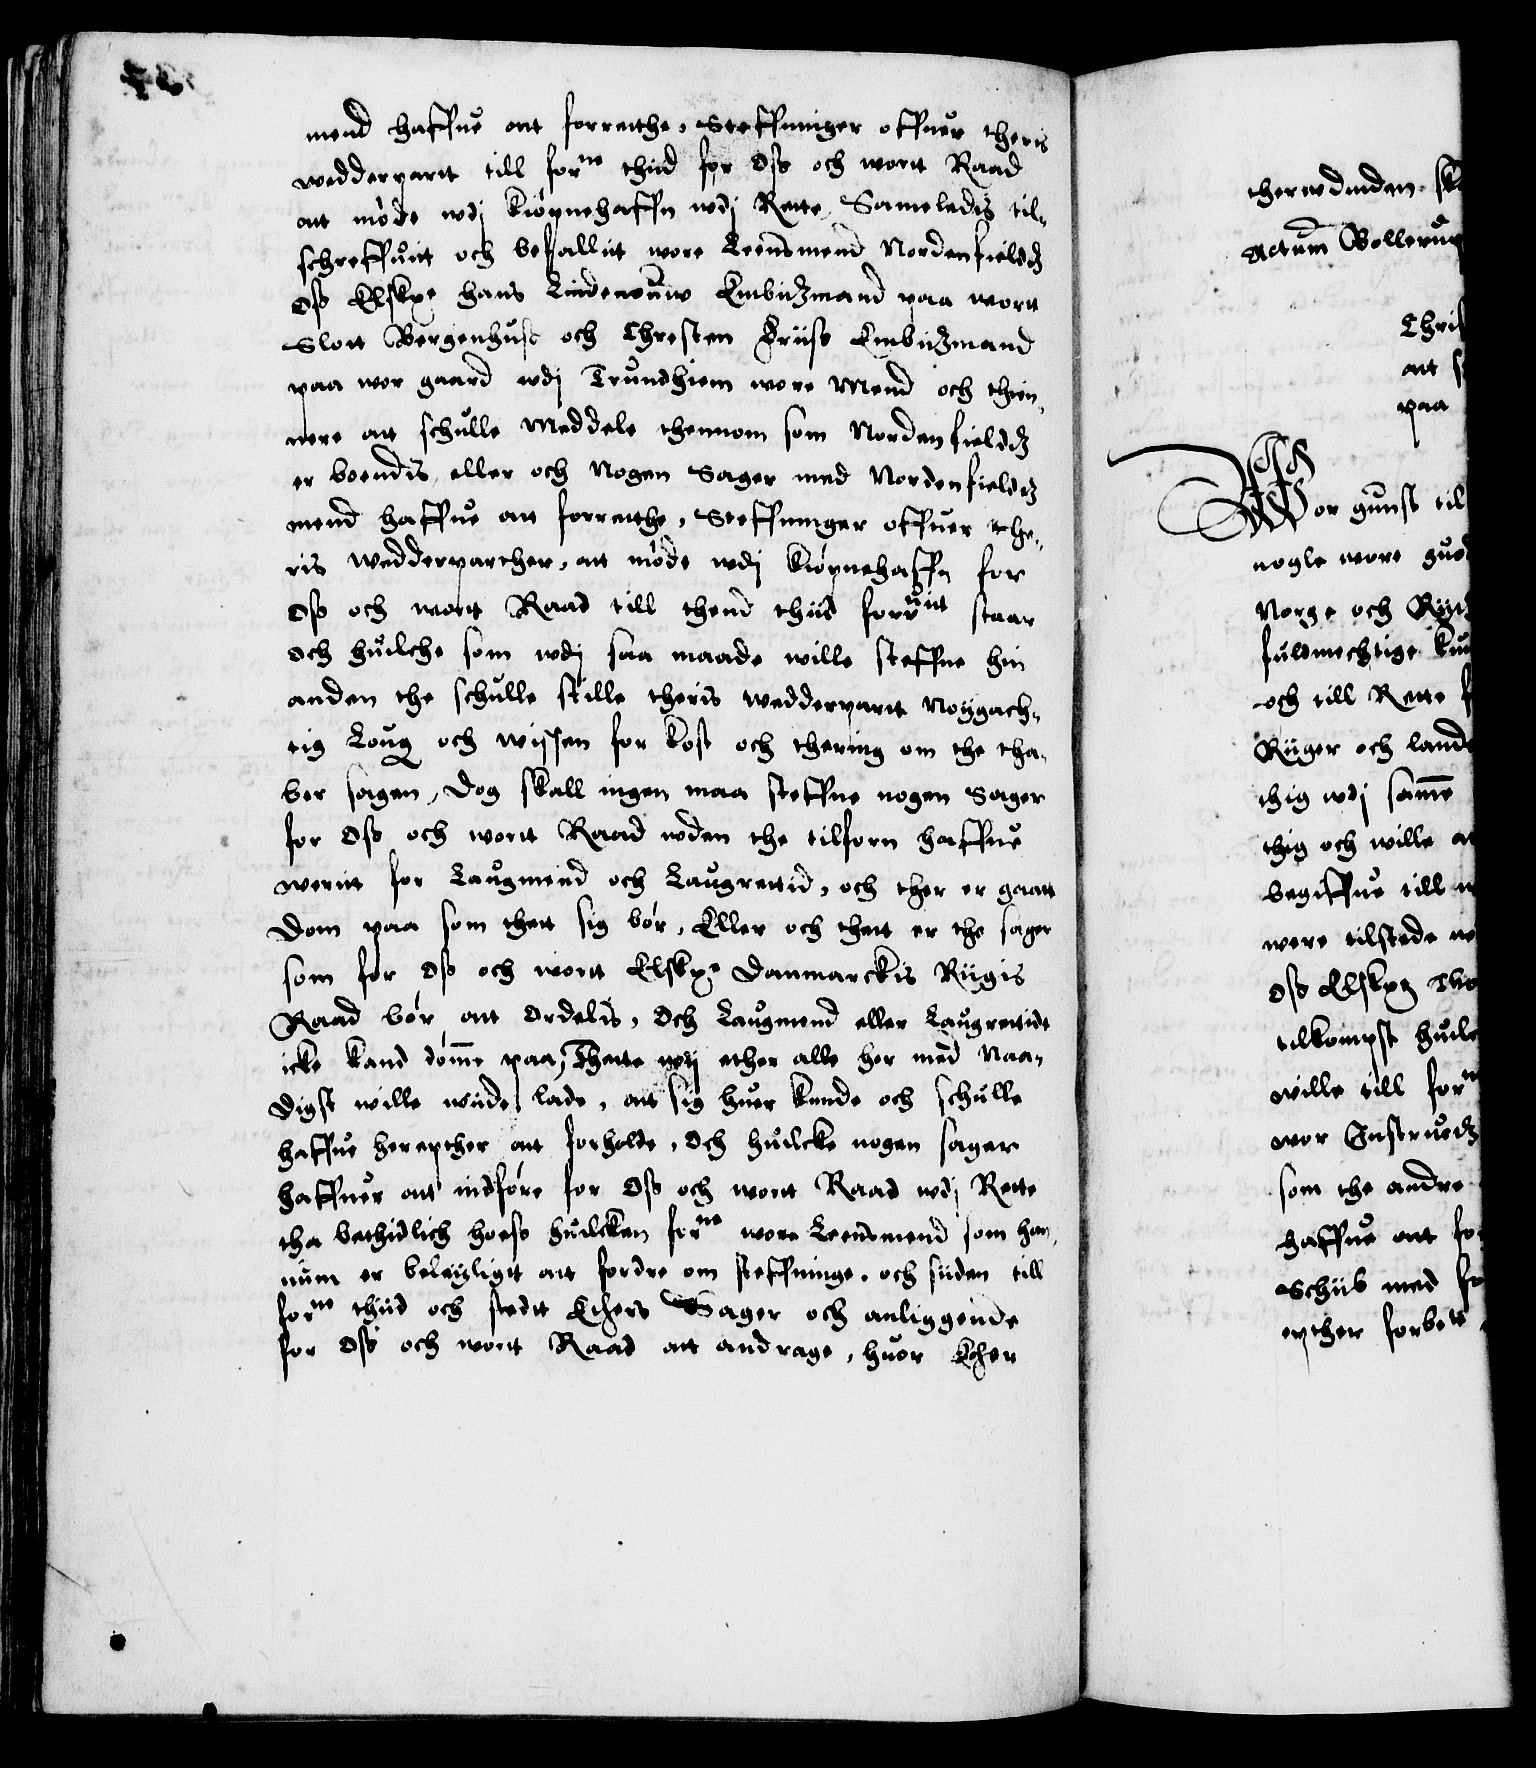 mend haffue att forrette, Steffninger offuer theris
wedderpartt till forne thiid for Oss och wortt Raad
att møde wdj Kiøpnehaffn wdj Rette, Sameledis til-
schreffuitt och befallitt wore Leensmend Nordenfieldz
Oss Elskpe Hans Lindenouw Embitzmand paa wortt
Slott Bergenhuss och Christen Friiss Embitzmand
paa wor gaard wdj Trundhiem wore Mend och thien-
nere att schulle Meddele thennom som Nordenfieldz
er boendis eller och Nogen Sager med Nordenfieldz
mend haffue att forrette, Steffninger offuer the-
ris wedderparther, att møde wdj Kiøpnehaffn for
Oss och wortt Raad till thend thiid forschreffuitt staar
Och huilche som wdj saa maade wille steffne hin
anden the schulle stille theris wedderpartt Nøygach-
tig Loug och wissen for kost och thering om the tha-
ber sagen, Dog skall ingen maa steffne nogen Sager
for Oss och wortt Raad wden the tilforn haffue
werit for Laugmend och Laugrettid, och ther er gaatt
Dom paa som thett sig bør, Eller och thett er the sager
som for Oss och wortt Elskpe Danmarckis Riigis
Raad bør att Ordelis, Och Laugmend eller Laugrettidt
icke kand døme paa, Thette wij ether alle her med Naa-
digst wille wiide lade, att sig huer kunde och schulle
haffue herepther att forholde, Och huilcke nogen sager
haffuer att indføre for Oss och wortt Raad wdj Rette
tha bethidlich hoess huilcken forne wore Leensmend som han-
num er beleyligtt att fordre om steffninge, och siiden till
forne thiid och stedt Ethers Sager och anliggende
for Oss och wortt Raad att andrage, huor Ether

therwdinden
Actum Bollerup
att
paa
Wor gunst til
nogle wore
Norge och
fuldmechtige
och till Rette
Riiger och
thig wdj same
thig och wille
begiffue till
were tilstede
Oss Elskpe
tilkompst
wille till forne
wor
som the andre
haffue att
Schiib med
epther